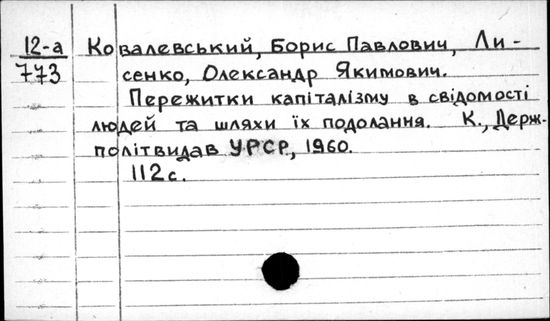 12-а
773
Ковалевський, Борис Павлович, Ли-
сенко, Олександр Якимович.
Пережитки капіталізму в свідомості
людей та шляхи їх подолання. К., Держ-
політвидав УРСР, 1960.
112 с.